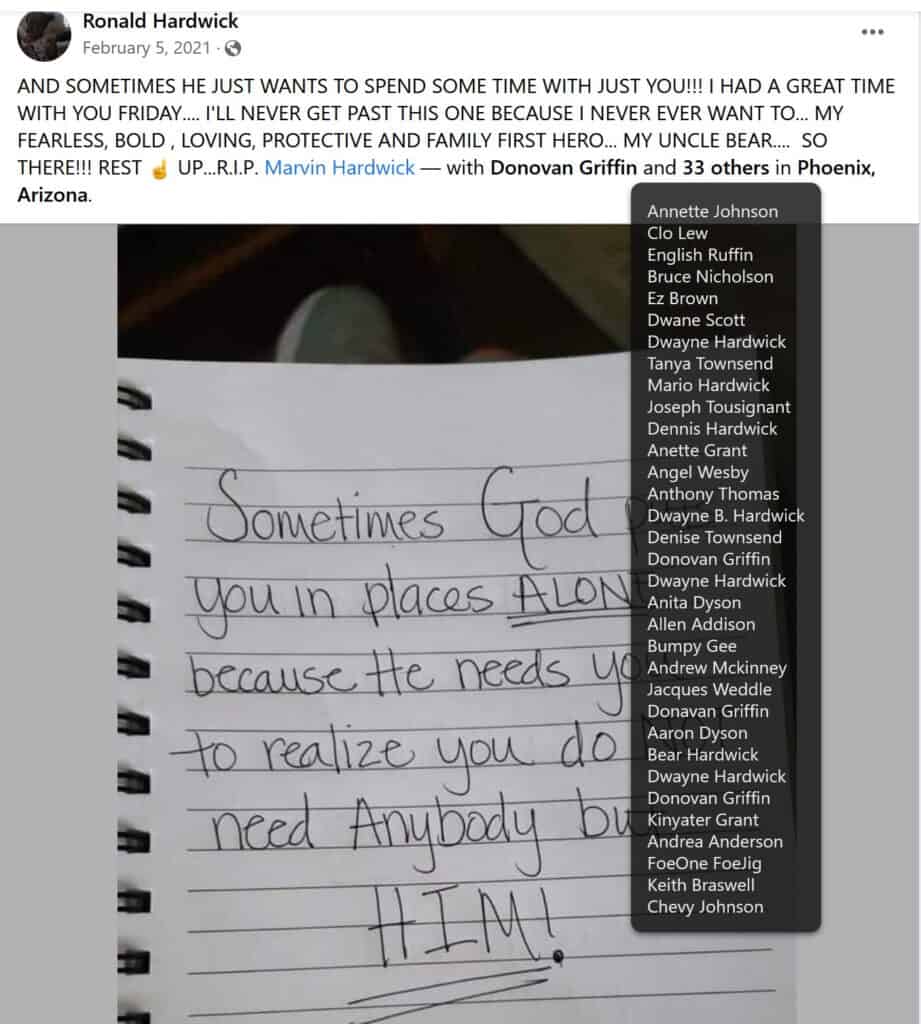 Ronald Hardwick
February 5, 2021 ·
AND SOMETIMES HE JUST WANTS TO SPEND SOME TIME WITH JUST YOU!!! I HAD A GREAT TIME
WITH YOU FRIDAY.... I'LL NEVER GET PAST THIS ONE BECAUSE I NEVER EVER WANT TO... MY
FEARLESS, BOLD , LOVING, PROTECTIVE AND FAMILY FIRST HERO... MY UNCLE BEAR.... SO
THERE!!! REST ☝️ UP...R.I.P. Marvin Hardwick — with Donovan Griffin and 33 others in Phoenix,
Arizona.
Annette Johnson
Clo Lew
English Ruffin
Bruce Nicholson
Ez Brown
Dwane Scott
Dwayne Hardwick
Tanya Townsend
Mario Hardwick
Joseph Tousignant
Dennis Hardwick
Anette Grant
Angel Wesby
Anthony Thomas
Dwayne B. Hardwick
Denise Townsend
Donovan Griffin
Dwayne Hardwick
Anita Dyson
Allen Addison
Bumpy Gee
Andrew Mckinney
Jacques Weddle
Donavan Griffin
Aaron Dyson
Bear Hardwick
Dwayne Hardwick
Donovan Griffin
Kinyater Grant
Andrea Anderson
FoeOne FoeJig
Keith Braswell
Chevy Johnson
Sometimes God
you in places ALONE
because He needs you
to realize you do NOT
need Anybody but
HIM!